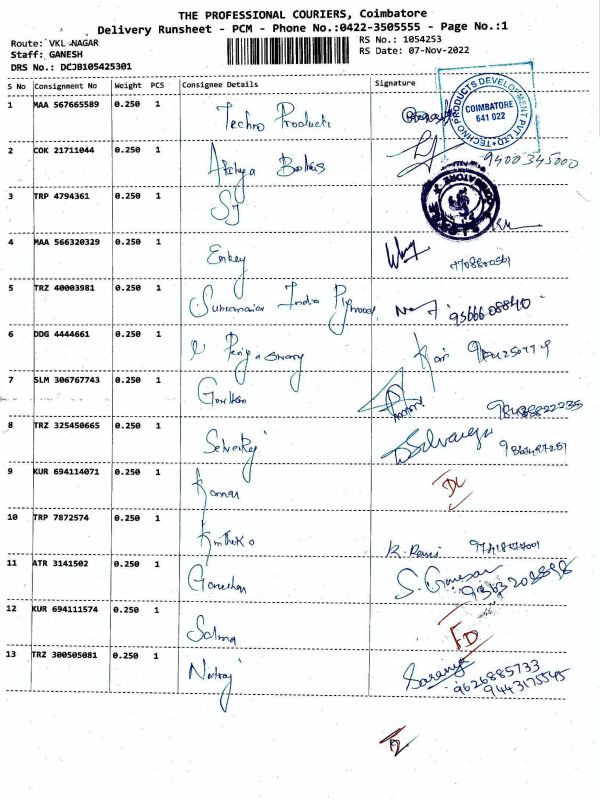 THE PROFESSIONAL COURIERS, Coimbatore
Delivery Runsheet - PCM - Phone No.:0422-3505555 - Page No.:1
Route: VKL NAGAR
RS No.: 1054253
Staff: GANESH
RS Date: 07-Nov-2022
DRS No.: DCJB105425301
S No Consignment No Weight PCS Consignee Details Signature
1 MAA 567665589 0.250 1 Techno Products
TECHNO PRODUCTS DEVELOPMENT PVT LTD
COIMBATORE
641 022
2 COK 21711044 0.250 1
9400345000
3 TRP 4794361 0.250 1 SJ
4 MAA 566320329 0.250 1 Enkey
5 TRZ 40003981 0.250 1 Subramaniar India Plywood 9566608840
6 DDG 4444661 0.250 1
7 SLM 306767743 0.250 1 Gowtham
8 TRZ 325450665 0.250 1 Selveraj Dselvaraj
9 KUR 694114071 0.250 1 Kumar DL
10 TRP 7872574 0.250 1 Karthik
11 ATR 3141502 0.250 1 Ganeshan S. Ganesan
12 KUR 694111574 0.250 1 Salma FD
13 TRZ 300505081 0.250 1 Natraj Saranya
9626885733
9443175545